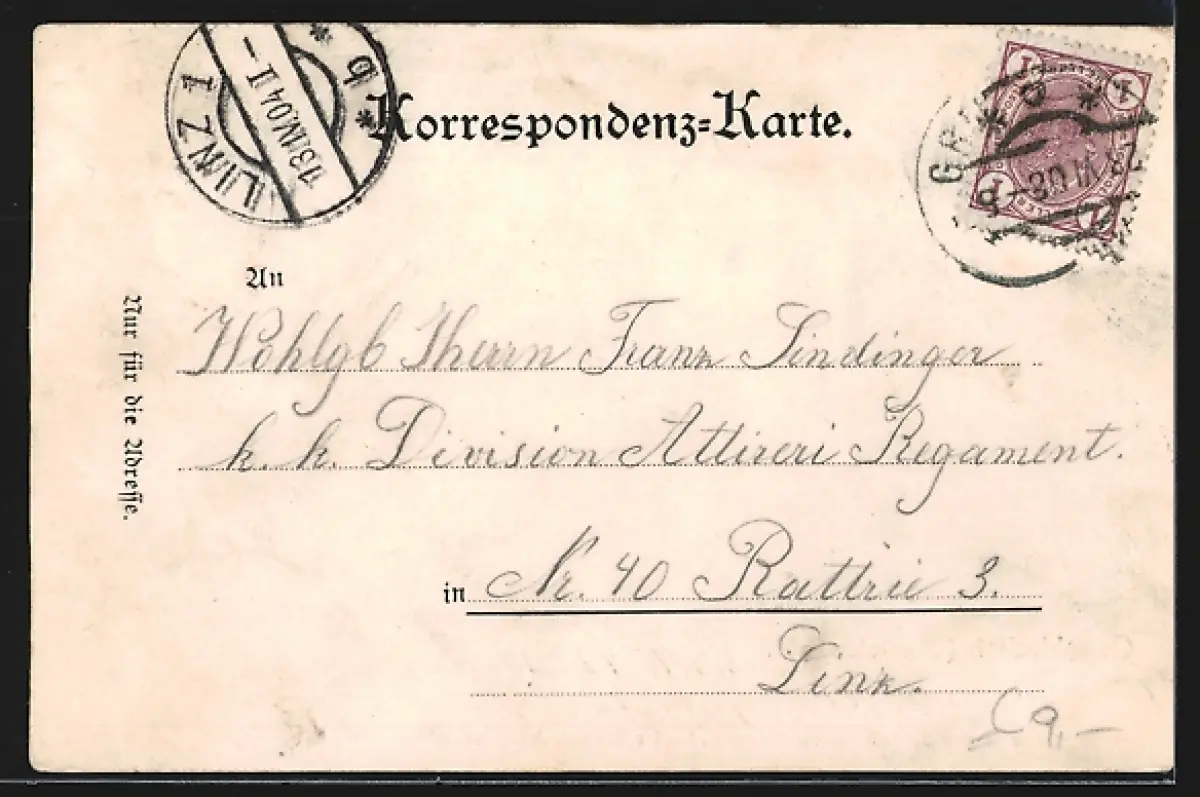 LINZ 1
13.IV.04 II-
* b *
Korrespondenz=Karte.
An
Nur für die Adresse.
Wohlgb Herrn Franz Sindinger
k. k. Division Attireri Regament.
in Nr. 40 Battrie 3.
Linz.
9,-